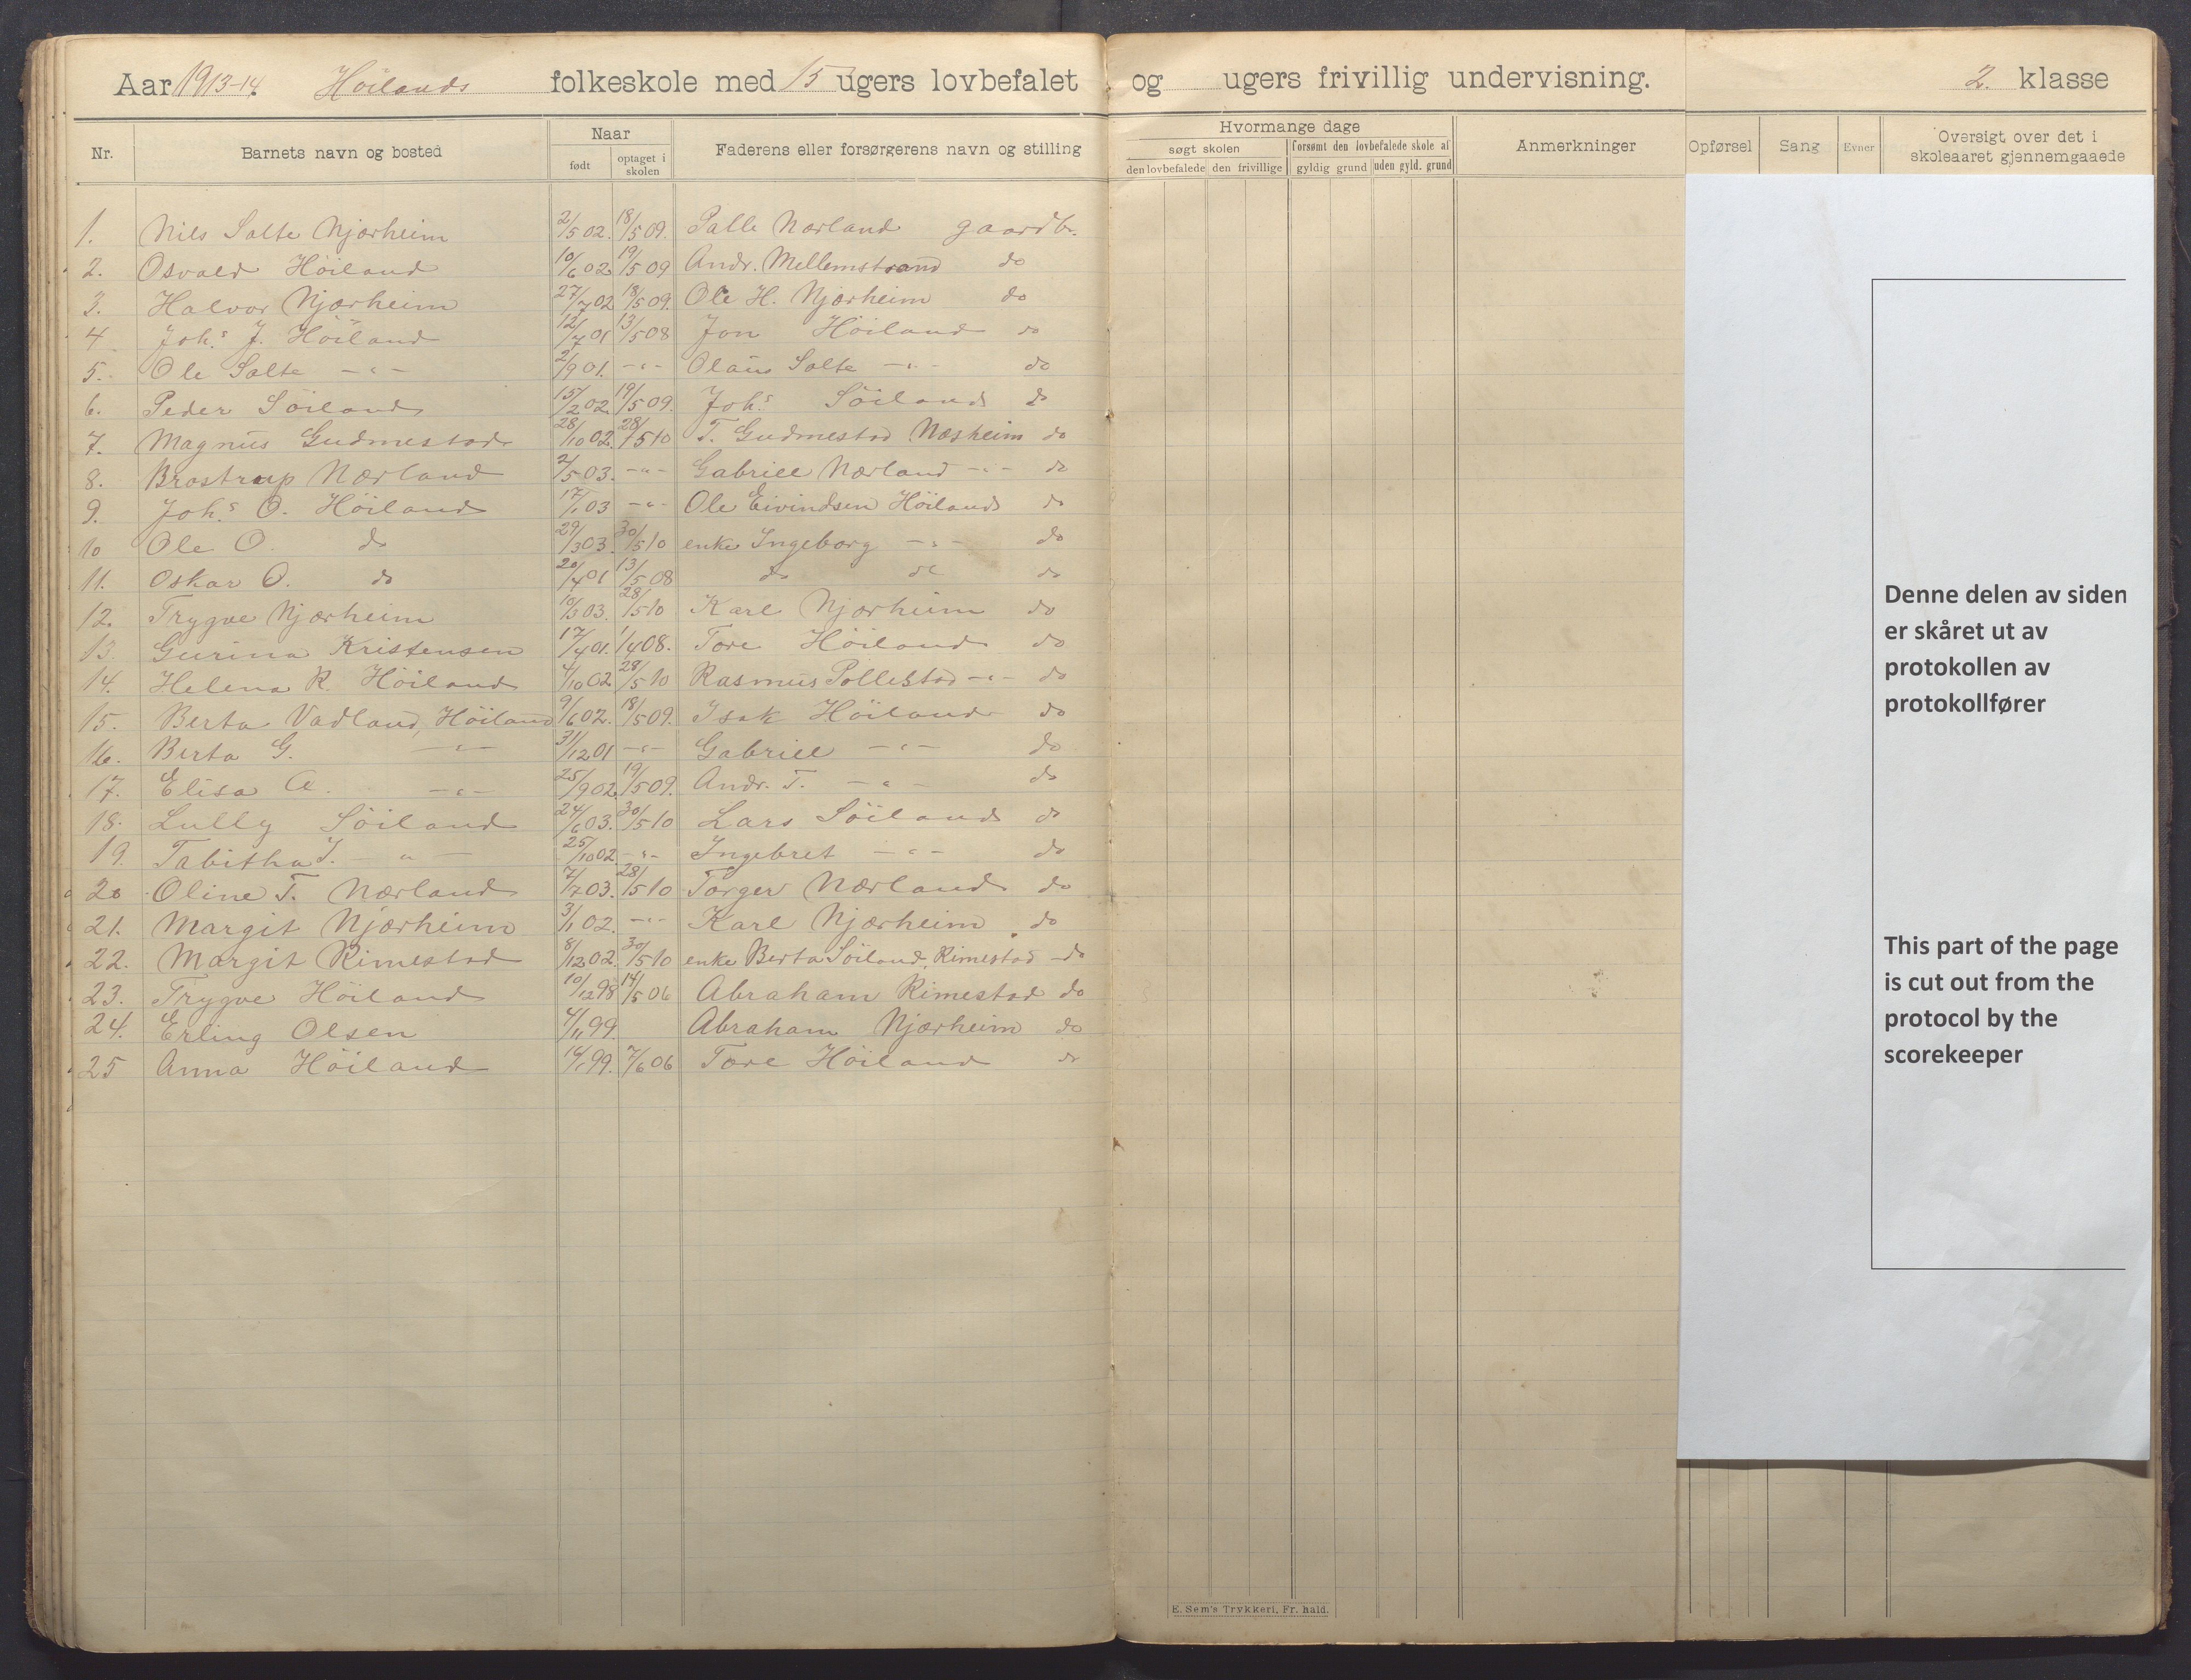 Aar 1913-14. Höilands folkeskole med 15 ugers lovbefalet og ugers frivillig undervisning. 2. klasse
Nr. Barnets navn og bosted Naar født optaget i skolen Faderens eller forsørgerens navn og stilling
Hvormange dage
søgt skolen forsømt den lovbefalede skole af
den lovbefalede den frivillige gyldig grund uden gyld. grund
Anmerkninger
Opførsel Sang Evner Oversigt over det i skoleaaret gjennemgaaede
1. Nils Salte Njærheim 2/5 02. 18/5 09. Salle Nærland gaardbr.
2. Osvald Höiland 10/6 02 19/5 09 Andr. Mellemstrand do
3. Halvor Njærheim 27/7 02 18/5 09. Ole H. Njærheim do
4 Joh.s J. Höiland 12/7 01 13/5 08 Jon Höiland do
5. Ole Salte -"- 2/9 01. -"- Olaus Salte -"- do
6. Peder Söiland 15/2 02. 19/5 09. Joh.s Söiland do
7. Magnus Gudmestad 28/10 02. 28/5 10 T. Gudmestad Næsheim do
8. Brostrup Nærland 2/5 03. -"- Gabriel Nærland -"- do
9. Joh.s O. Höiland 17/1 03 -"- Ole Eivindsen Höiland do
10 Ole O. do 29/3 03. 30/5 10 enke Ingeborg -"- do
11. Oskar O. do 20/4 01 13/5 08 do do do
12. Trygve Njærheim 10/3 03. 28/5 10 Karl Njærheim do
13. Gurina Kristensen 17/4 01. 1/4 08. Tore Höiland do
14. Helena R. Höiland 4/10 02 28/5 10 Rasmus Pollestad -"- do
15. Berta Vadland, Höiland 9/6 02. 18/5 09. Isak Höiland do
16. Berta G. -"- 31/12 01 -"- Gabriel -"- do
17. Elisa A. -"- 25/9 02. 19/5 09. Andr. T. -"- do
18. Lully Söiland 24/6 03. 30/5 10 Lars Söiland do
19. Tabitha I. -"- 25/10 02 -"- Ingebret -"- do
20 Oline T. Nærland 7/7 03. 28/5 10 Torger Nærland do
21. Margit Njærheim 3/1 02. -"- Karl Njærheim do
22. Margit Rimestad 8/12 02. 30/5 10 enke Berta Söiland, Rimestad do
23. Trygve Höiland 10/12 98 14/5 06 Abraham Rimestad do
24. Erling Olsen 4/11 99. Abraham Njærheim do
25 Anna Höiland 14/1 99. 7/6 06 Tore Höiland do
Denne delen av siden
er skåret ut av
protokollen av
protokollfører
This part of the page
is cut out from the
protocol by the
scorekeeper
E. Sem's Trykkeri, Fr. hald.